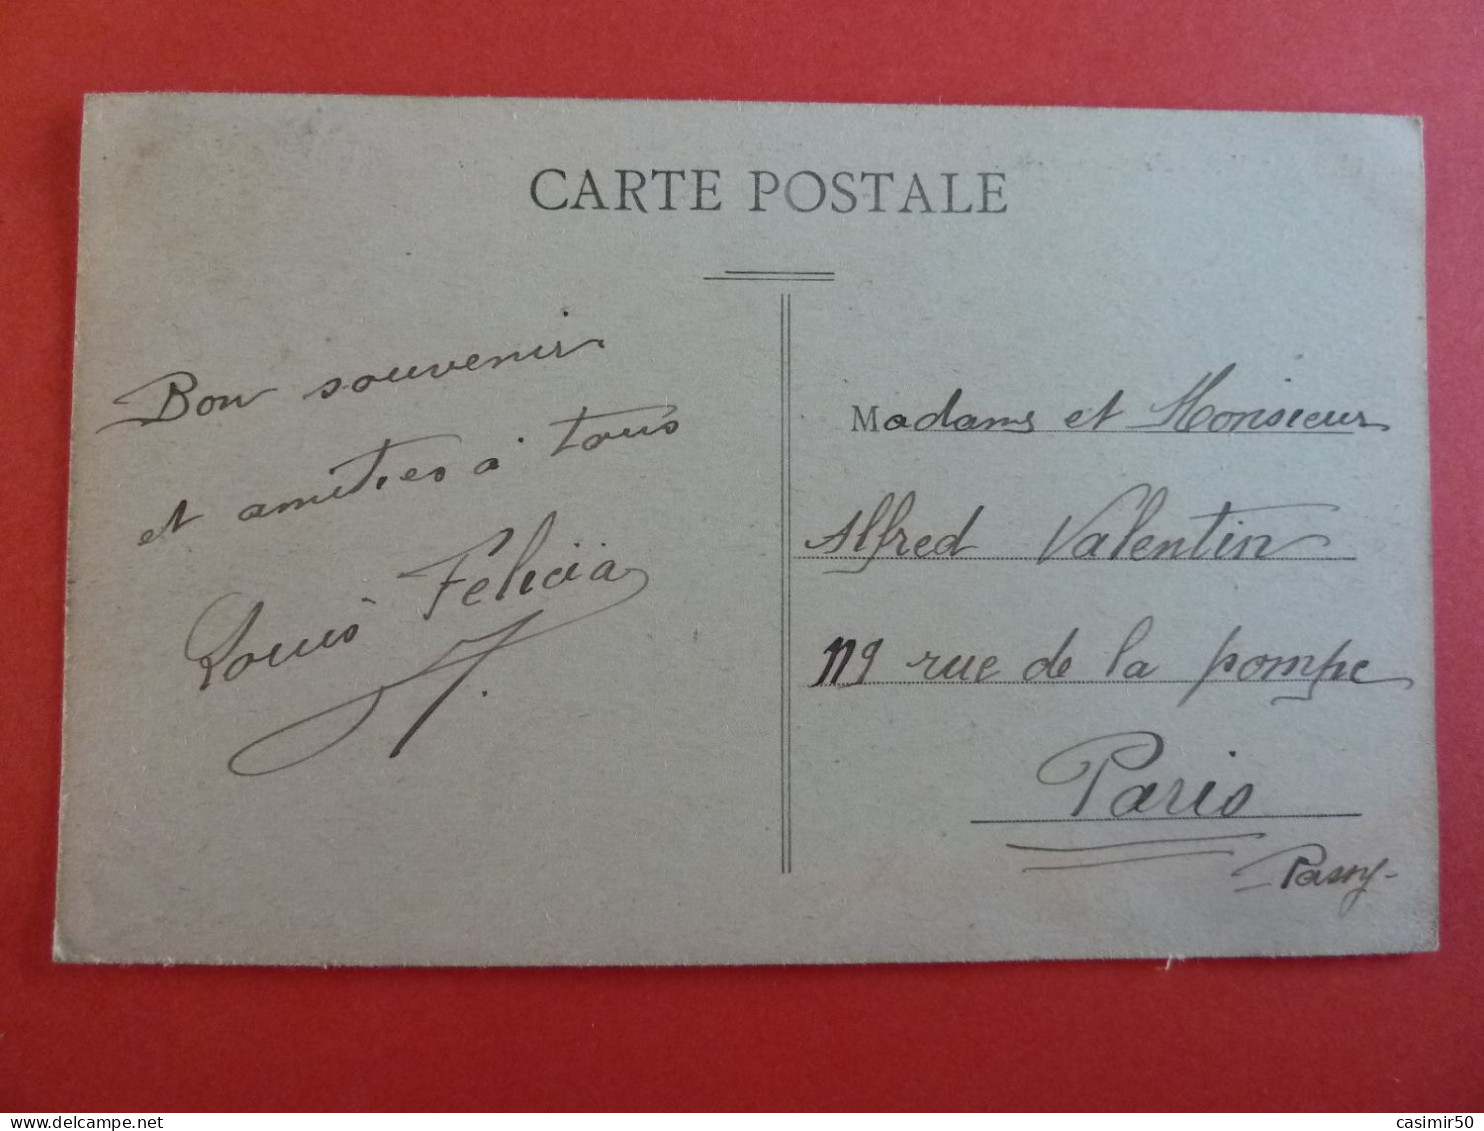 CARTE POSTALE
Bon souvenir
et amitiés à tous
Louis Felicia
Madame et Monsieur
Alfred Valentin
119 rue de la pompe
Paris
Passy-
casimir50